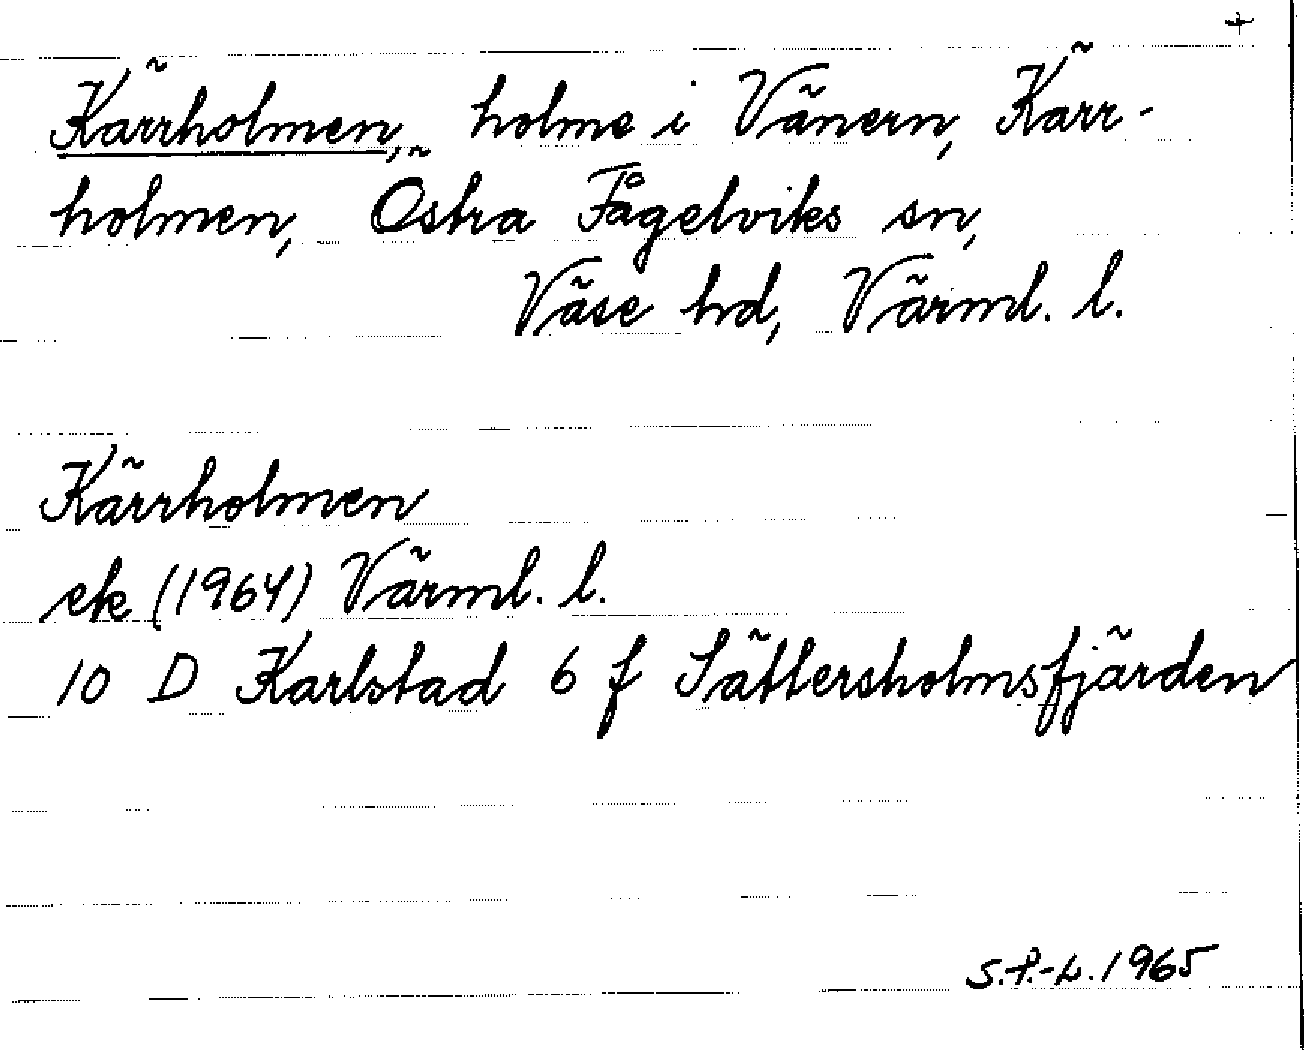 +
Kärrholmen, holme i Vänern, Kärr-
holmen, Östra Fågelviks sn,
Väse hd, Värml. l.
Kärrholmen
ek (1964) Värml. l.
10 D Karlstad 6 f Sättersholmsfjärden
S.P.-L. 1965